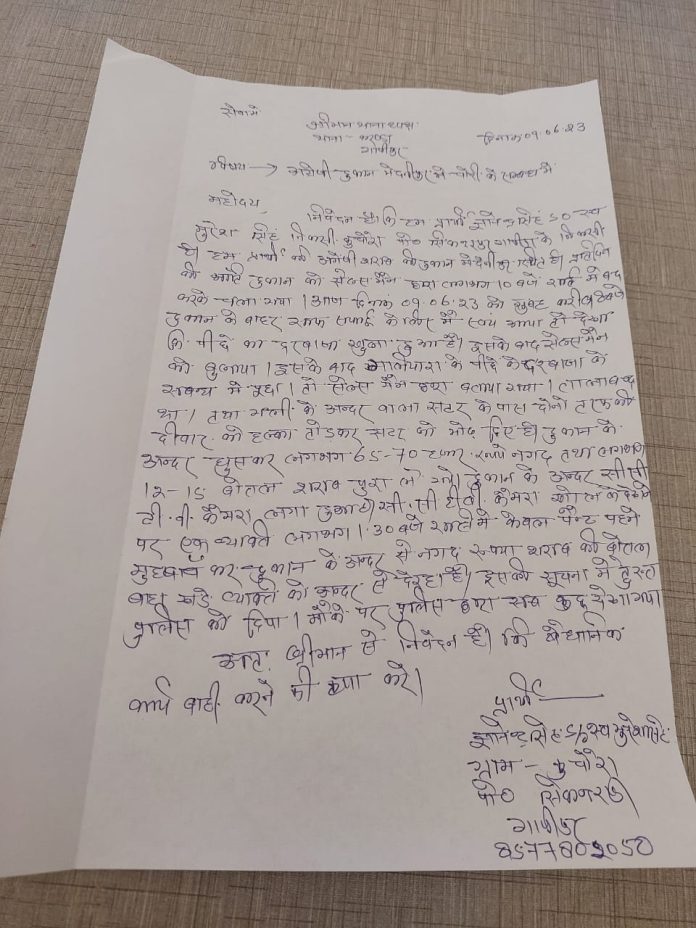 सेवामें
श्रीमान थानाध्यक्ष
थाना- करण्डा
गाजीपुर
दिनांक 09.06.23
विषय → अंग्रेजी दुकान मेदनीपुर में चोरी के सम्बन्ध में
महोदय,
निवेदन है। कि हम प्रार्थी सिंह S/O स्व
सुरेश सिंह निवासी कुचौरा पो० सिकन्दरा गाजीपुर के निवासी
है। हम प्रार्थी की अंग्रेजी शराब की दुकान मेदनीपुर स्थित है। प्रतिदिन
की भाति दुकान को सेल्स मैन द्वारा लगभग 10 बजे रात्रि में बन्द
करके चला गया। आज दिनांक 09.06.23 को सुबह करीब बजे
दुकान के बाहर साफ सफाई के लिए मैं स्वयं आया तो देखा
कि पीछे का दरवाजा खुला हुआ है। इसके बाद सेल्स मैन
को बुलाया। इसके बाद गलियारा के पीछे के दरवाजा के
सम्बन्ध में पूछा। तो सेल्स मैन द्वारा बताया गया। ताला बन्द
था। तथा गली के अन्दर वाला सटर के पास दोनो तरफ की
दीवार को हल्का तोड़कर सटर को मोड़ दिए है। दुकान के
अन्दर घुसकर लगभग 65-70 हजार रूपये नगद तथा लगभग
12-15 बोतल शराब चुरा ले गये। दुकान के अन्दर सी सी
टी. वी. कैमरा लगा हुआ है। सी. सी टी वी. कैमरा खोल के देखने
पर एक व्यक्ति लगभग 1.30 बजे रात्री में केवल पैन्ट पहने
मुह बांध कर दुकान के अन्दर से नगद रूपया शराब की बोतल
बाहर खड़े व्यक्ति को अन्दर से दे रहा है। इसकी सूचना में तुरन्त
पुलिस को दिया। मौके पर पुलिस द्वारा सब कुछ देखा गया
अतः श्रीमान से निवेदन है। कि वैधानिक
कार्य वाही करने की कृपा करे।
प्रार्थी
सिंह S/o स्व सुरेश सिंह
ग्राम - कुचौरा
पो० सिकन्दरा
गाजीपुर
8577802050